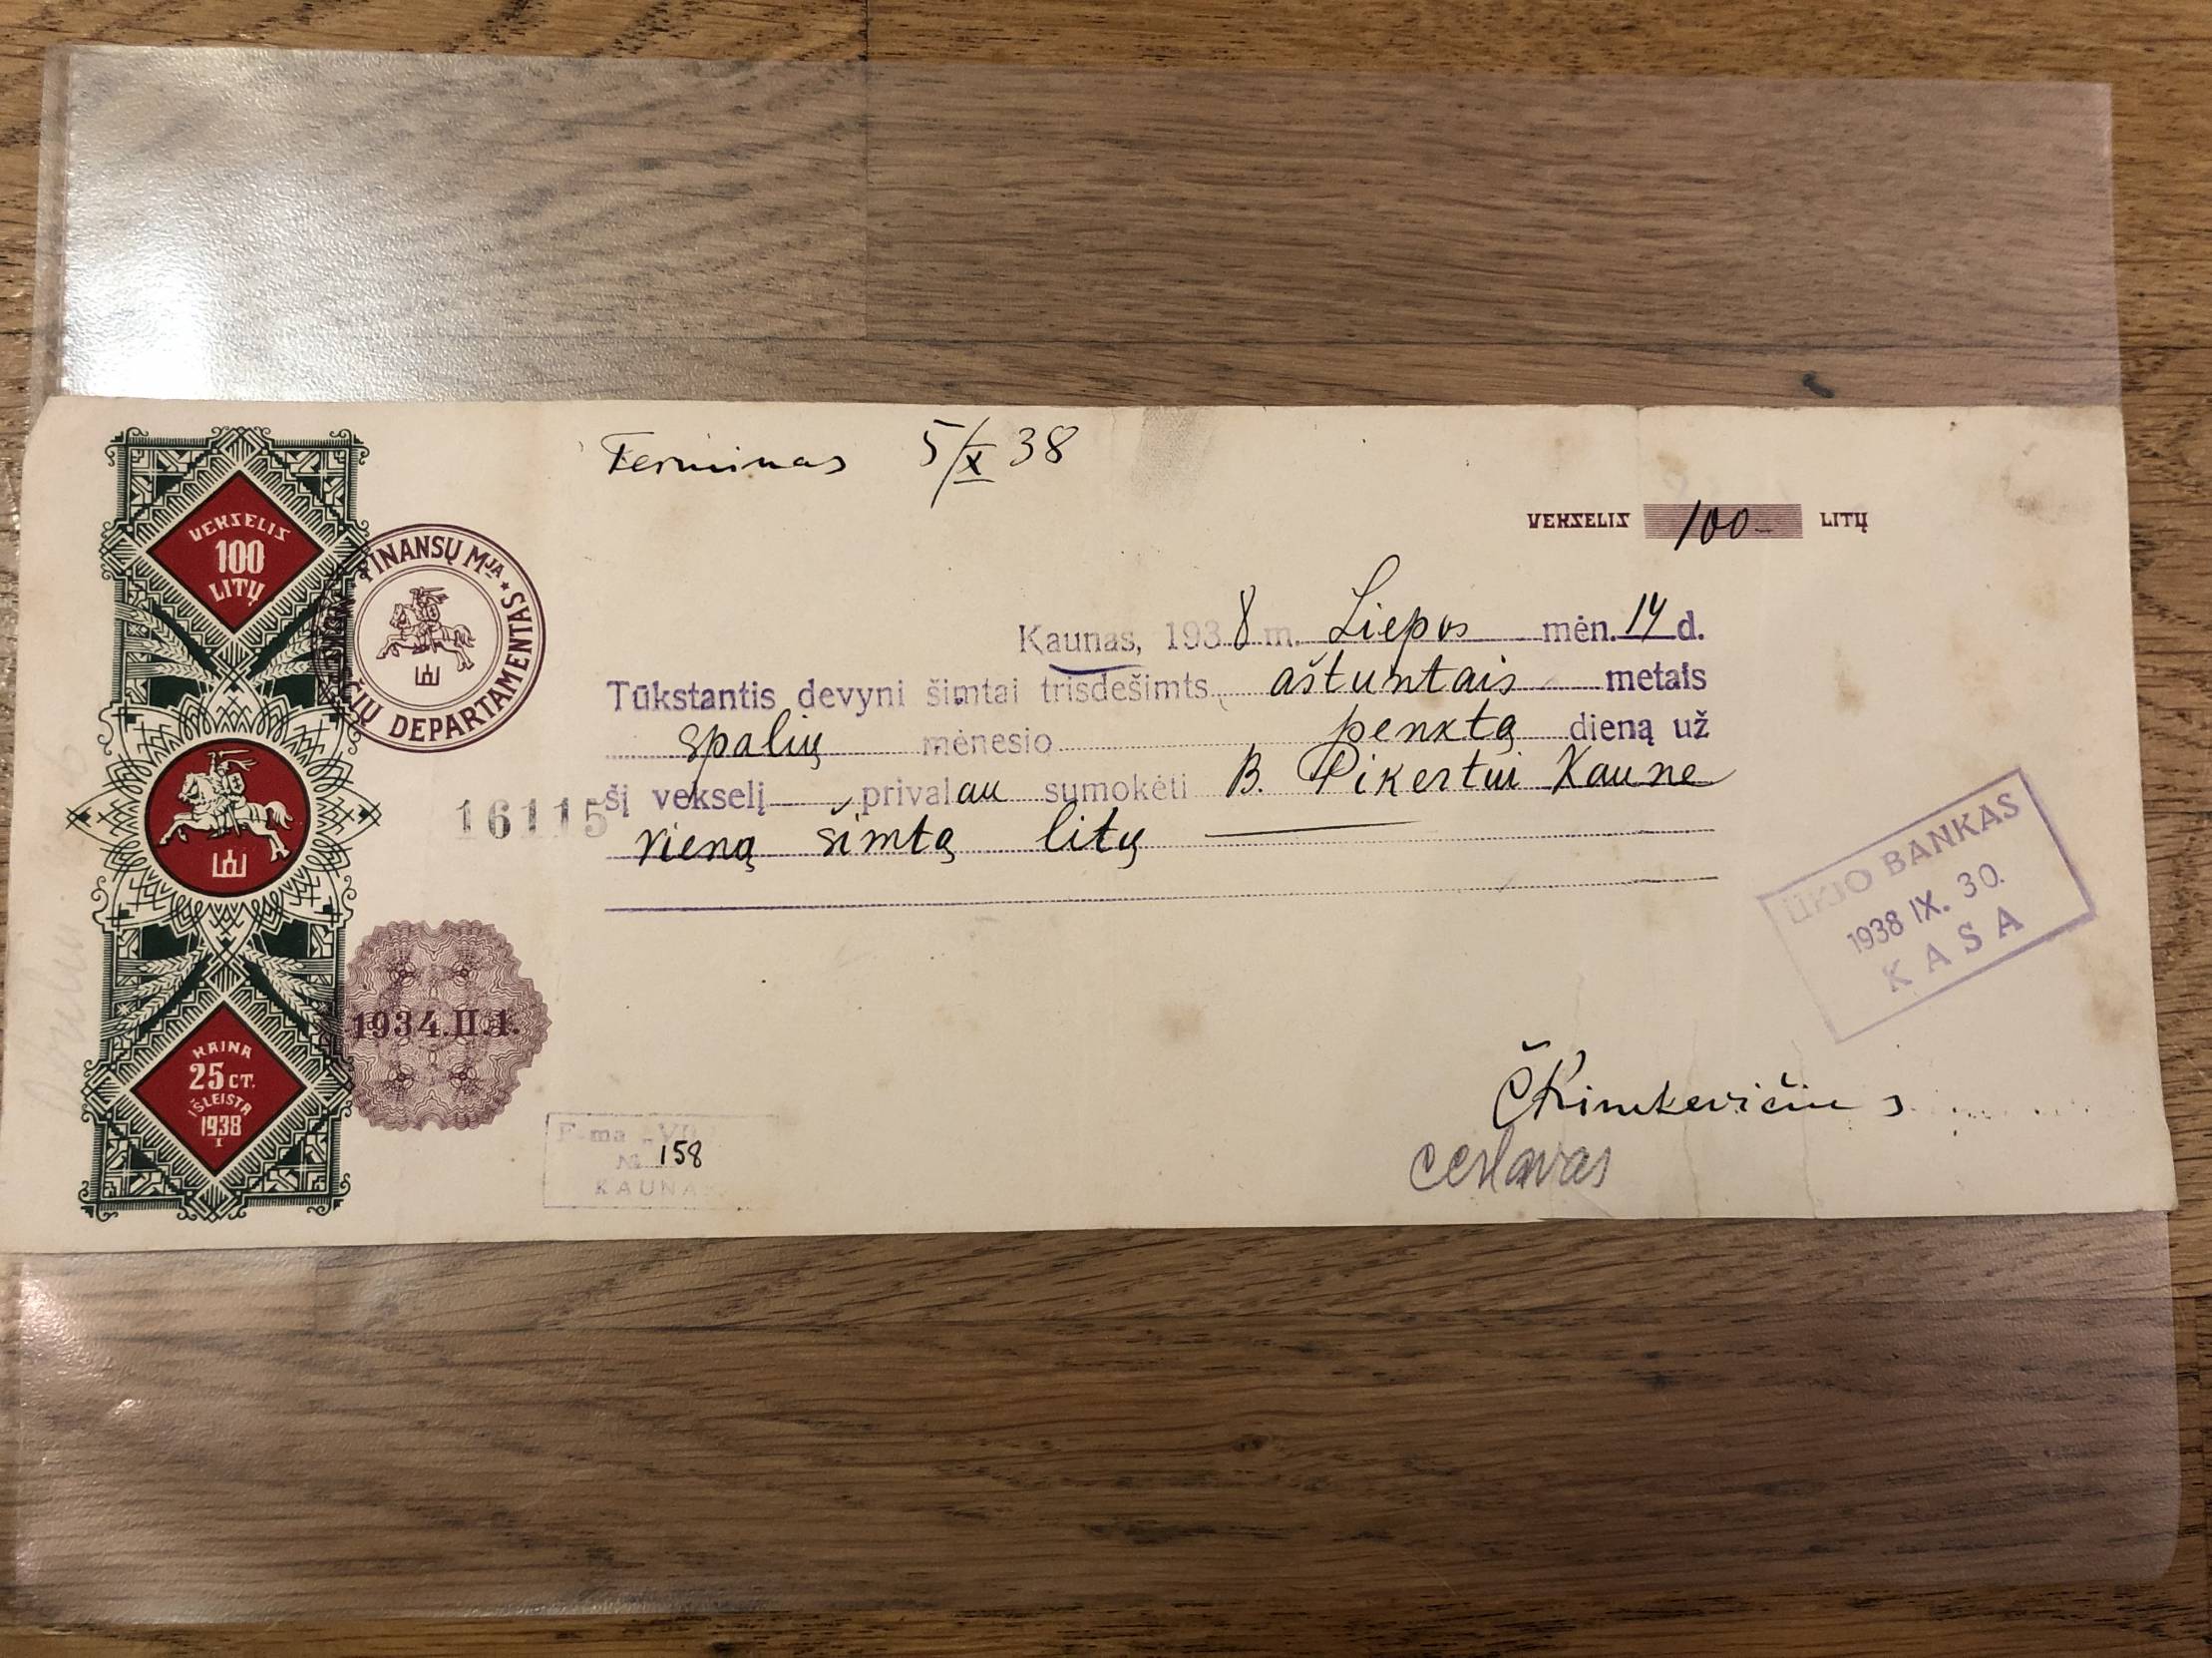 Terminas 5/X 38
VEKSELIS 100 LITŲ
VEKSELIS 100- LITŲ
FINANSŲ MJA * DEPARTAMENTAS
Kaunas, 1938 m. Liepos mėn. 14 d.
Tūkstantis devyni šimtai trisdešimts aštuntais metais
spalių mėnesio penxtą dieną už
šį vekselį privalau sumokėti B. Pikertui Kaune
16115
vieną šimtą litų
ŪKIO BANKAS
1938 IX. 30.
KASA
1934.II.1.
KAINA
25 CT.
IŠLEISTA
1938
I
F-ma
№ 158
KAUNAS